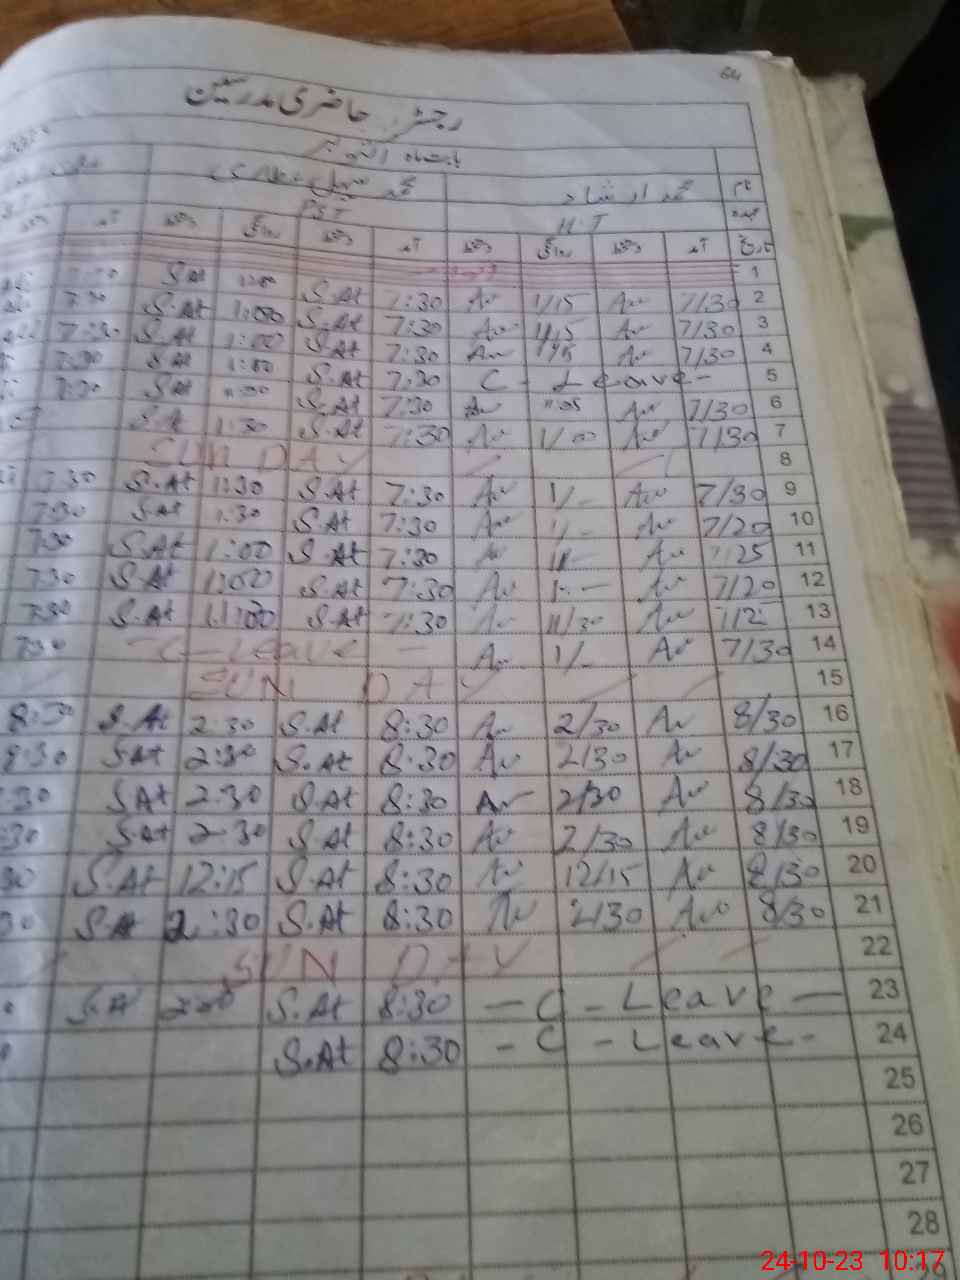 64
رجسٹر حاضری مدرسین
بابت ماہ اکتوبر
نام محمد ارشاد محمد
عہدہ H.T PST
تاریخ آمد دستخط روانگی دستخط آمد دستخط روانگی دستخط آمد
1
2 7/30 Au 1/15 Au 7:30 S.At 1:00 S.At
3 7/30 Au 1/15 Au 7:30 S.At 1:00 S.At 7:30
4 7/30 Au Au 7:30 S.At 1:00 S.At 7:30
5 C - Leave - 7:30 S.At 1:00 S.At 7:30
6 7/30 Au Au 7:30 S.At S.At 7:30
7 7/30 Au 1/00 Au 7:30 S.At 1:30 S.At
8 SUN DAY
9 7/30 Au 1/- Au 7:30 S.At 1:30 S.At 7:30
10 7/20 Au 1/- Au 7:30 S.At 1:30 S.At 7:30
11 7/25 Au Au 7:30 S.At 1:00 S.At 7:30
12 7/20 Au Au 7:30 S.At 1:00 S.At 7:30
13 Au 11/30 Au 7:30 S.At 11:00 S.At 7:30
14 7/30 Au 1/- Au - C - Leave - 7:30
15 SUN DAY
16 8/30 Au 2/30 Au 8:30 S.At 2:30 S.At 8:30
17 8/30 Au 2/30 Au 8:30 S.At 2:30 S.At 8:30
18 8/30 Au 2/30 Au 8:30 S.At 2:30 S.At :30
19 8/30 Au 2/30 Au 8:30 S.At 2:30 S.At :30
20 8/30 Au 12/15 Au 8:30 S.At 12:15 S.At 30
21 8/30 Au 2/30 Au 8:30 S.At 2:30 S.At 30
22 SUN DAY
23 - C - Leave - 8:30 S.At S.At
24 - C - Leave - 8:30 S.At
25
26
27
28
24-10-23 10:17